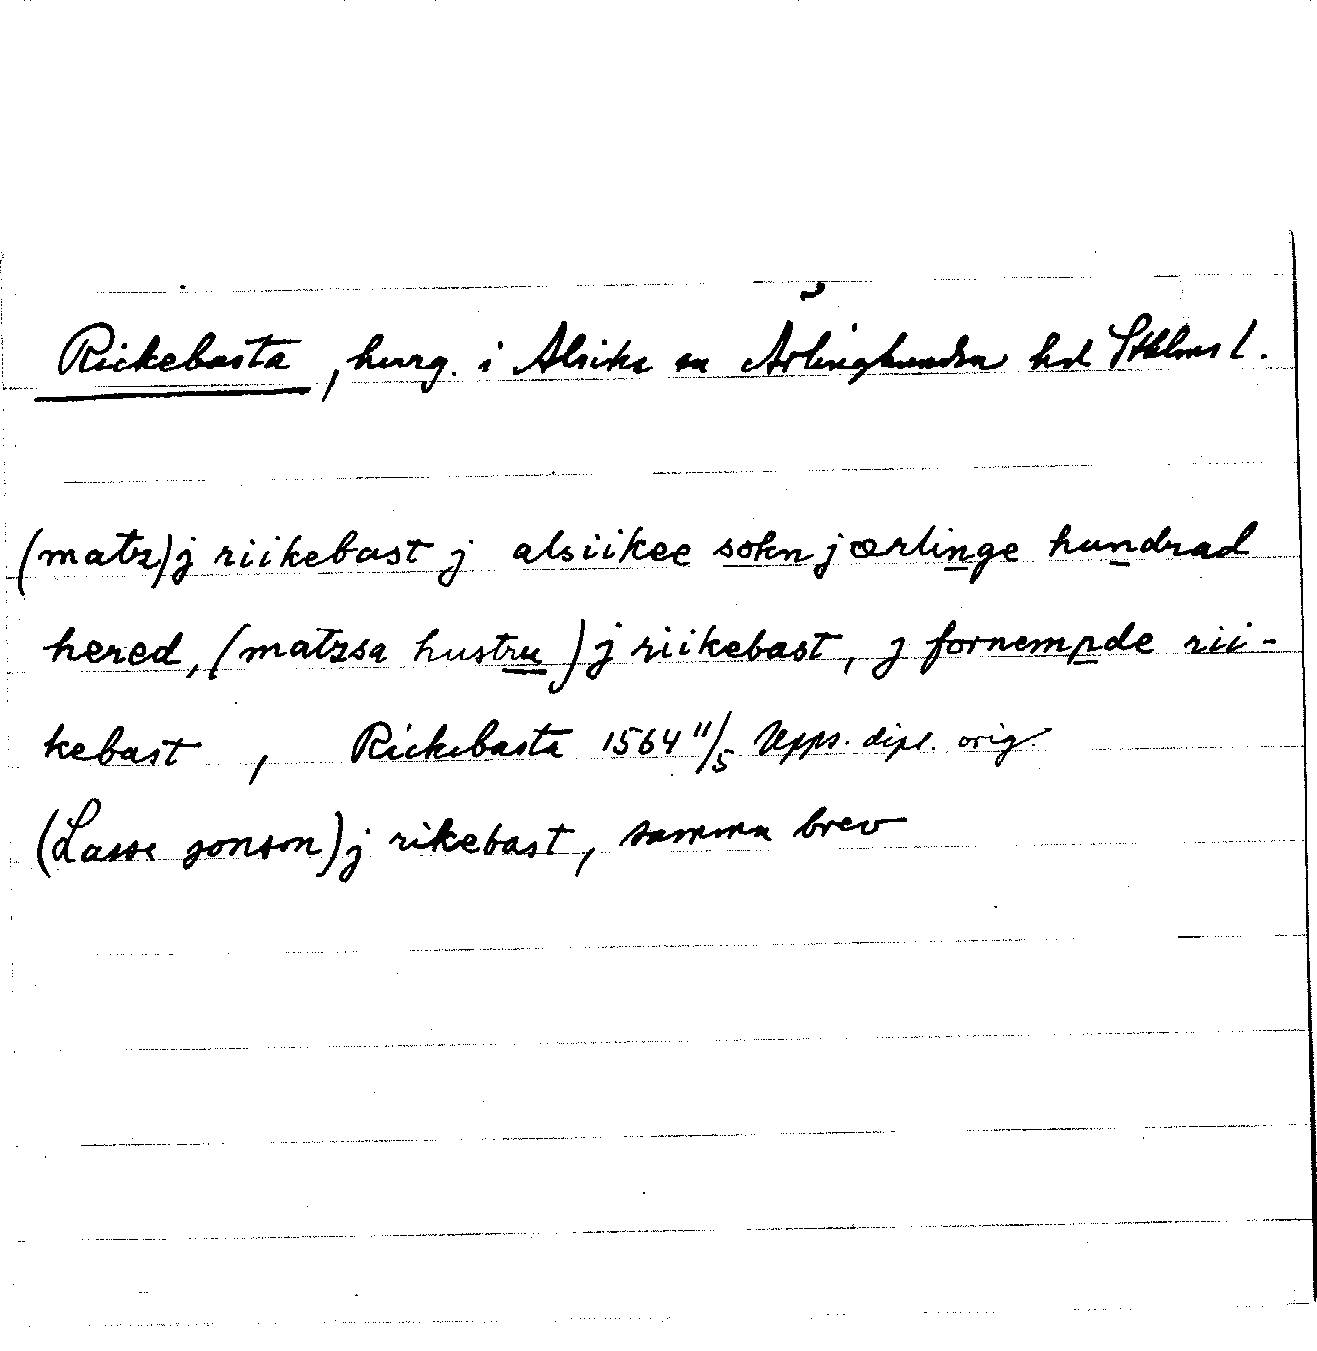 Rickebasta, herrg. i Alsike sn Ärlinghundra hd Sthlms l.
(matz) j riikebast j alsiikee sokn j ærlinge hundrad
hered, (matzsa hustru) j riikebast, j fornempde rii-
kebast, Rickebasta 1564 11/5 Upps. dipl. orig.
(Lasse jonson) j rikebast, samma brev